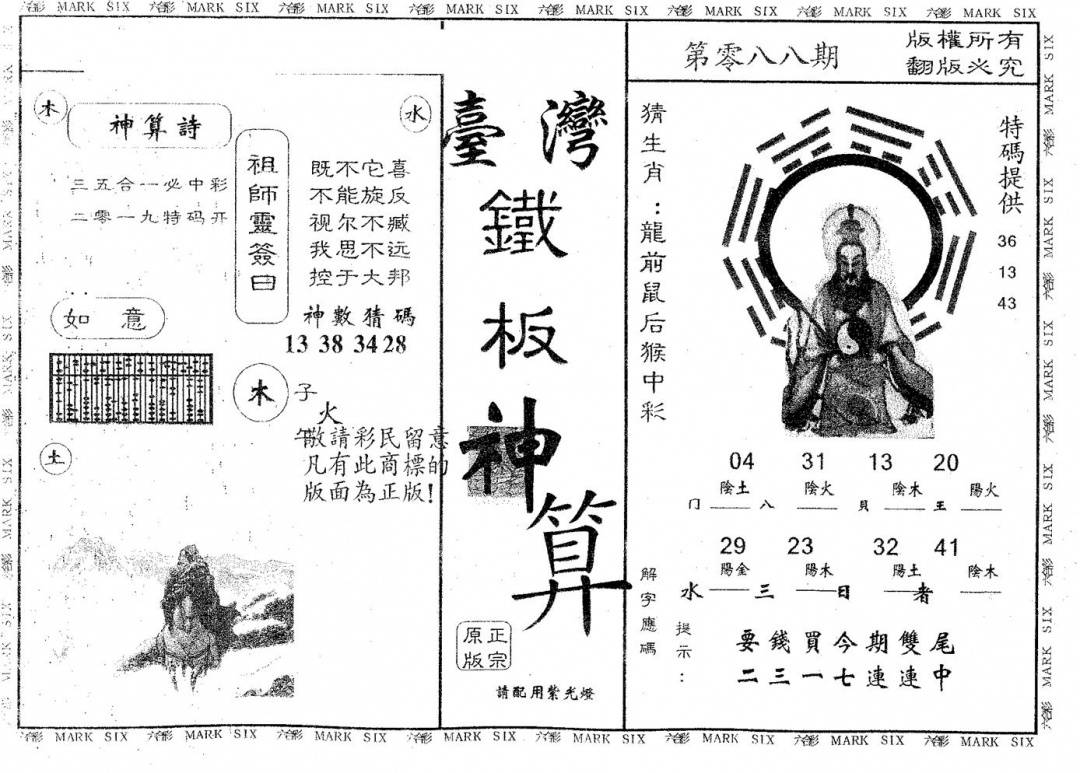 六合彩 MARK SIX 六合彩 MARK SIX 六合彩 MARK SIX 六合彩 MARK SIX 六合彩 MARK SIX 六合彩 MARK SIX 六合彩 MARK SIX 六合彩 MARK SIX
第零八八期
版權所有
翻版必究
木
神算詩
水
三五合一必中彩
二零一九特码开
祖師靈簽曰
既不它喜
不能旋反
视尔不臧
我思不远
控于大邦
神數猜碼
13 38 34 28
如意
木
子
火
午
敬請彩民留意
凡有此商標的
版面為正版!
土
臺灣
鐵板神算
正宗
原版
請配用紫光燈
猜生肖:龍前鼠后猴中彩
特碼提供
36
13
43
04 31 13 20
陰土 陰火 陰木 陽火
门 八 貝 王
29 23 32 41
陽金 陽木 陽土 陰木
水 三 日 者
解字應碼
提示:
要錢買今期雙尾
二三一七連連中
六合彩 MARK SIX 六合彩 MARK SIX 六合彩 MARK SIX 六合彩 MARK SIX 六合彩 MARK SIX 六合彩 MARK SIX 六合彩 MARK SIX 六合彩 MARK SIX